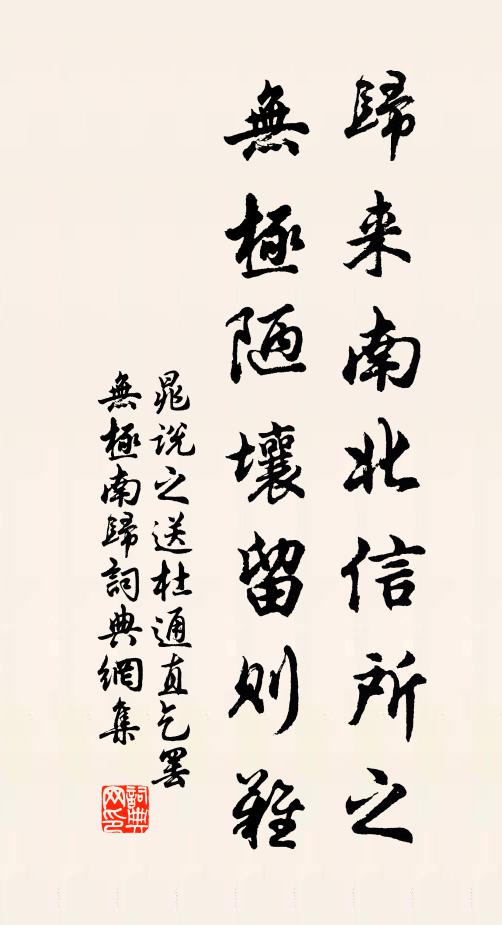 歸来南北信所之
無極陋壤留則難
晁說之送杜通直乞罷
無極南歸詞典網集
詞典网印